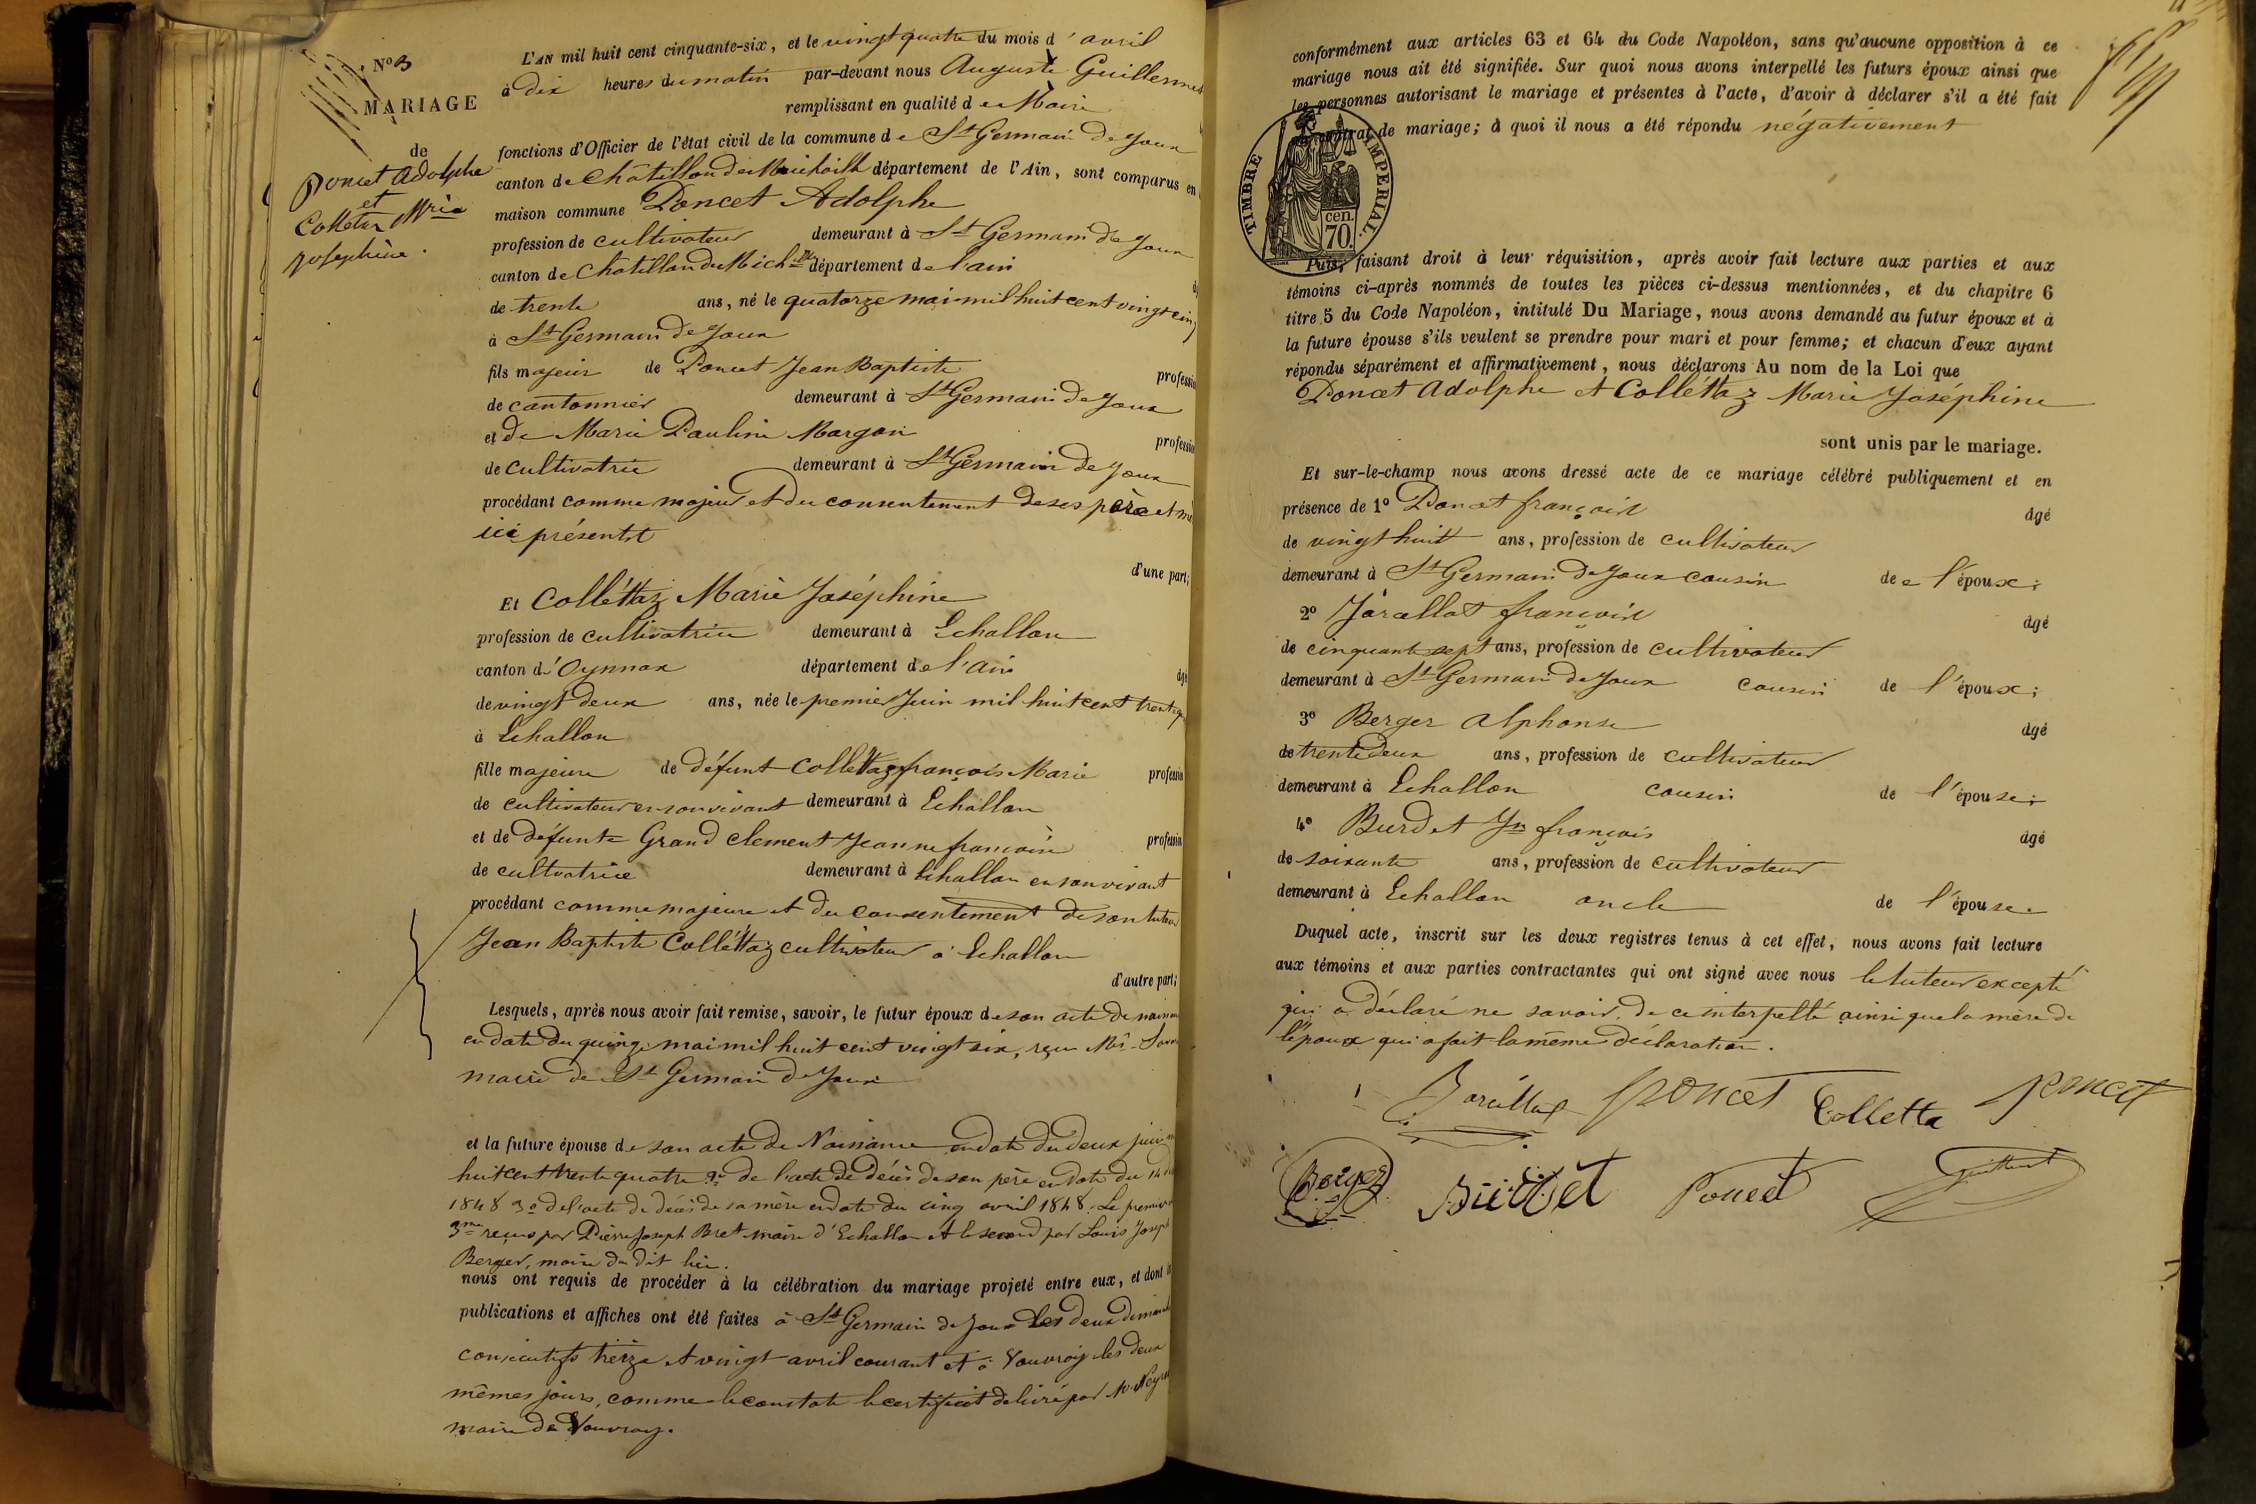 N° 3
MARIAGE
de
Poncet Adolphe
et
Collettaz Mrie
Joséphine.
L'AN mil huit cent cinquante-six, et le vingt quatre du mois d'avril
à dix heures du matin par-devant nous Auguste Guillermet
remplissant en qualité de Maire
fonctions d'Officier de l'état civil de la commune de St Germain De Joux
canton de Châtillon de Michaille département de l'Ain, sont comparus en
maison commune Poncet Adolphe
profession de cultivateur demeurant à St Germain De Joux
canton de Châtillon de Michlle département de l'ain
de trente ans, né le quatorze mai mil huit cent vingt cinq
à St Germain De Joux
fils majeur de Poncet Jean Baptiste profession
de cantonnier demeurant à St Germain De Joux
et de Marie Pauline Margon profession
de cultivatrice demeurant à St Germain De Joux
procédant comme majeur et du consentement de ses père et
ici présents
d'une part;
Et Colléttaz Marie Joséphine
profession de cultivatrice demeurant à Echallon
canton d'Oyonnax département de l'ain
de vingt deux ans, née le premier Juin mil huit cent trente
à Echallon
fille majeure de défunt Collettaz françois Marie profession
de cultivateur en son vivant demeurant à Echallon
et de défunte Grand Clement Jeanne françoise profession
de cultivatrice demeurant à Echallon en son vivant
procédant comme majeure et du consentement de son tuteur
Jean Baptiste Colléttaz cultivateur à Echallon
d'autre part;
Lesquels, après nous avoir fait remise, savoir, le futur époux de son acte de naissance
en date du quinze mai mil huit cent vingt six, reçu Mr
maire de St Germain De Joux
et la future épouse de son acte de Naissance en date du deux juin
huit cent trente quatre 2° de l'acte de décès de son père en date du 14
1848 3° de l'acte de décès de sa mère en date du cinq avril 1848. Le premier
3me reçus par Pierre Joseph Bret maire d'Echallon et le second par Louis Joseph
Berger, maire du dit lieu.
nous ont requis de procéder à la célébration du mariage projeté entre eux, et dont
publications et affiches ont été faites à St Germain de Joux les deux dimanches
consécutifs treize et vingt avril courant et à Vouvray les deux
mêmes jours, comme le constate le certificat délivré par Mr
maire de Vouvray.
conformément aux articles 63 et 64 du Code Napoléon, sans qu'aucune opposition à ce
mariage nous ait été signifiée. Sur quoi nous avons interpellé les futurs époux ainsi que
les personnes autorisant le mariage et présentes à l'acte, d'avoir à déclarer s'il a été fait
contrat de mariage; à quoi il nous a été répondu négativement
TIMBRE IMPERIAL.
cen.
70.
Puis, faisant droit à leur réquisition, après avoir fait lecture aux parties et aux
témoins ci-après nommés de toutes les pièces ci-dessus mentionnées, et du chapitre 6
titre 5 du Code Napoléon, intitulé Du Mariage, nous avons demandé au futur époux et à
la future épouse s'ils veulent se prendre pour mari et pour femme; et chacun d'eux ayant
répondu séparément et affirmativement, nous déclarons Au nom de la Loi que
Poncet Adolphe et Colléttaz Marie Joséphine
sont unis par le mariage.
Et sur-le-champ nous avons dressé acte de ce mariage célébré publiquement et en
présence de 1° Poncet françois âgé
de vingt huit ans, profession de cultivateur
demeurant à St Germain De Joux cousin de l'époux;
2° françois âgé
de cinquante sept ans, profession de cultivateur
demeurant à St Germain De Joux cousin de l'époux;
3° Berger Alphonse âgé
de trente deux ans, profession de cultivateur
demeurant à Echallon cousin de l'épouse;
4° Burdet Jn françois âgé
de soixante ans, profession de cultivateur
demeurant à Echallon oncle de l'épouse.
Duquel acte, inscrit sur les deux registres tenus à cet effet, nous avons fait lecture
aux témoins et aux parties contractantes qui ont signé avec nous le tuteur excepté
qui a déclaré ne savoir, de ce interpellé ainsi que la mère de
l'époux qui a fait la même déclaration.
poncet Colletta poncet
Berger Burdet Poncet